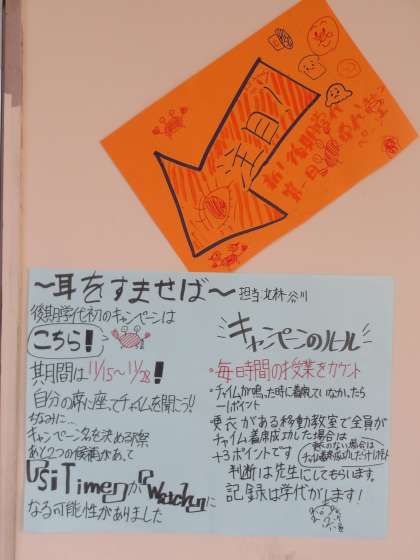 注目!
新!後期学代
第一回
めカニ堂
〜耳をすませば〜 担当 北林 谷川
後期学代初のキャンペーンは
こちら!
其期間は11/15〜11/28!
自分の席に座ってチャイムを聞こう!!
ちなみに…
キャンペーン名を決める際
あと2つの候補があって
『SiTime』か『Watch』に
なる可能性がありました
キャンペーンのルール
・毎日時間の授業をカウント
・チャイムが鳴った時に着席していなかったら
−1ポイント
・裏衣がある移動教室で全員が
チャイム着席成功した場合は
+3ポイントです
チャイム着席成功しただけ
判断は先生にしてもらいます。
記録は学代がします!